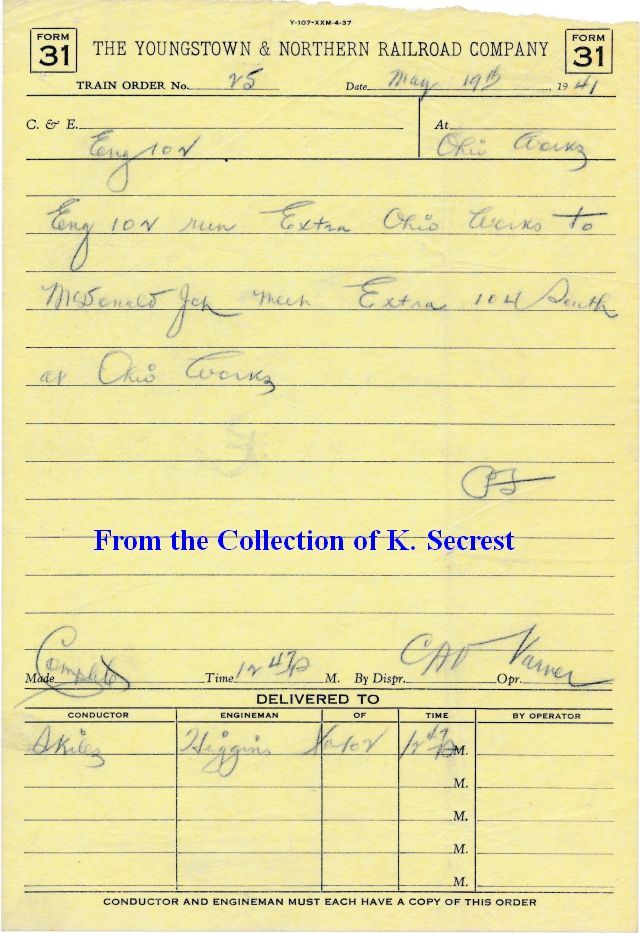 Y-107-XXM-4-37
FORM 31 THE YOUNGSTOWN & NORTHERN RAILROAD COMPANY FORM 31
TRAIN ORDER No. 25 Date May 19th, 1941
C. & E. Eng 102 At Ohio Works
Eng 102 run Extra Ohio Works to
McDonald Jct meet Extra 104 South
at Ohio Works
From the Collection of K. Secrest
Made Complete Time 12 47 P M. By Dispr. CAD Opr. Varner
DELIVERED TO
CONDUCTOR ENGINEMAN OF TIME BY OPERATOR
Skiles Higgins 102 12 47 P M.
M.
M.
M.
M.
CONDUCTOR AND ENGINEMAN MUST EACH HAVE A COPY OF THIS ORDER